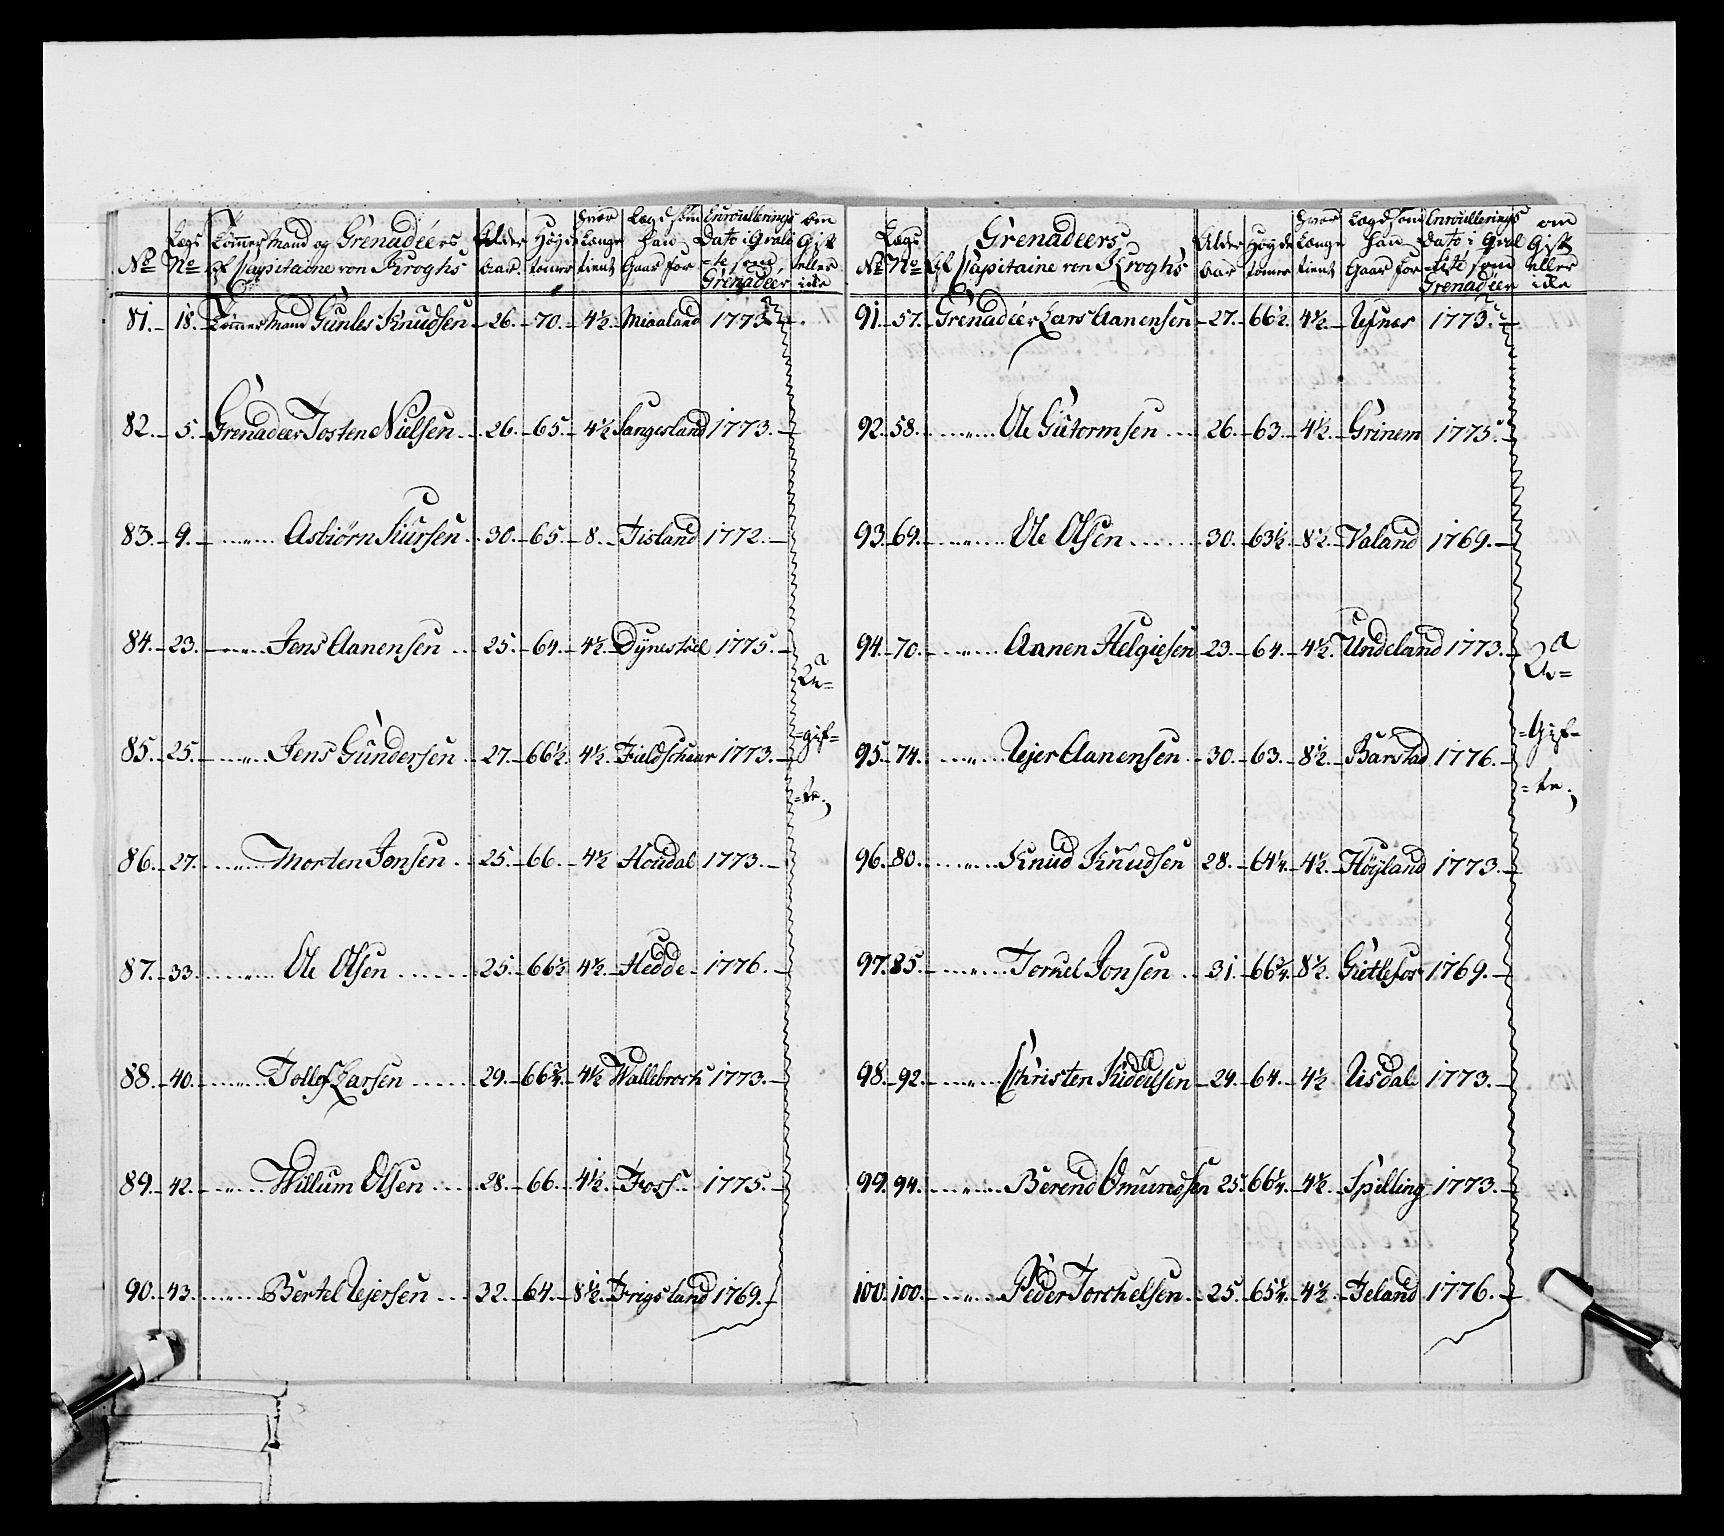 No Lægs No Tømmermand og Grenadeers af Capitaine von Kroghs Alder aar Høyde tommer hvor Længe tient Lægd som han Gaar for Enroullerings Dato i qvalite som Grenadeer om Gift eller icke
81. 18. Tømmermand Gunles Knudsen 26. 70. 4½ Miaaland 1773
82. 5. Grenadeer Tosten Nielsen 26. 65. 4½ Sangesland 1773.
83. 9. " Asbiørn Siursen 30. 65. 8. Fisland 1772.
84. 23. " Jens Aanensen 25. 64. 4½ Dynestøel 1775.
85. 25. " Jens Gundersen 27. 66½ 4½ Fieldschaar 1773.
86. 27. " Morten Jonsen 25. 66. 4½ Houdal 1773.
87. 33. " Ole Olsen 25. 66½ 4½ Hedde 1776.
88. 40. " Tollef Larsen 29. 66¾ 4½ Wallebroch 1773.
89. 42. " Willum Olsen 28. 66. 4½ Foss 1775.
90. 43. " Bertel Rejersen 32. 64. 8½ Frigsland 1769.
=gif=
=te.
No Lægs No Grenadeers af Capitaine von Kroghs Alder aar Høyde tommer hvor Længe tient Lægd som han Gaar for Enroullerings dato i qvalitete som Grenadeer om Gift eller icke
91. 57. Grenadeer Lars Aanensen 27. 66½ 4½ Refsnes 1773.
92. 58. " Ole Gutormsen 26. 63. 4½ Grinem 1775.
93. 69. " Ole Olsen 30. 63½ 8½ Valand 1769.
94. 70. " Aanen Helgiesen 23. 64. 4½ Undeland 1773.
95. 74. " Rejer Aanensen 30. 63. 8½ Barstad 1776.
96. 80. " Knud Knudsen 28. 64¼ 4½ Høyland 1773.
97. 85. " Torkel Jonsen 31. 66¾ 8½ Gietlefos 1769.
98. 92. " Christen Kiddelsen 24. 64. 4½ Risdal 1773.
99. 94. " Berend Omundsen 25. 66¼ 4½ Spilling 1773.
100. 100. " Peder Torchelsen 25. 65¼ 4½ Feland 1776.
=Gif=
=te.